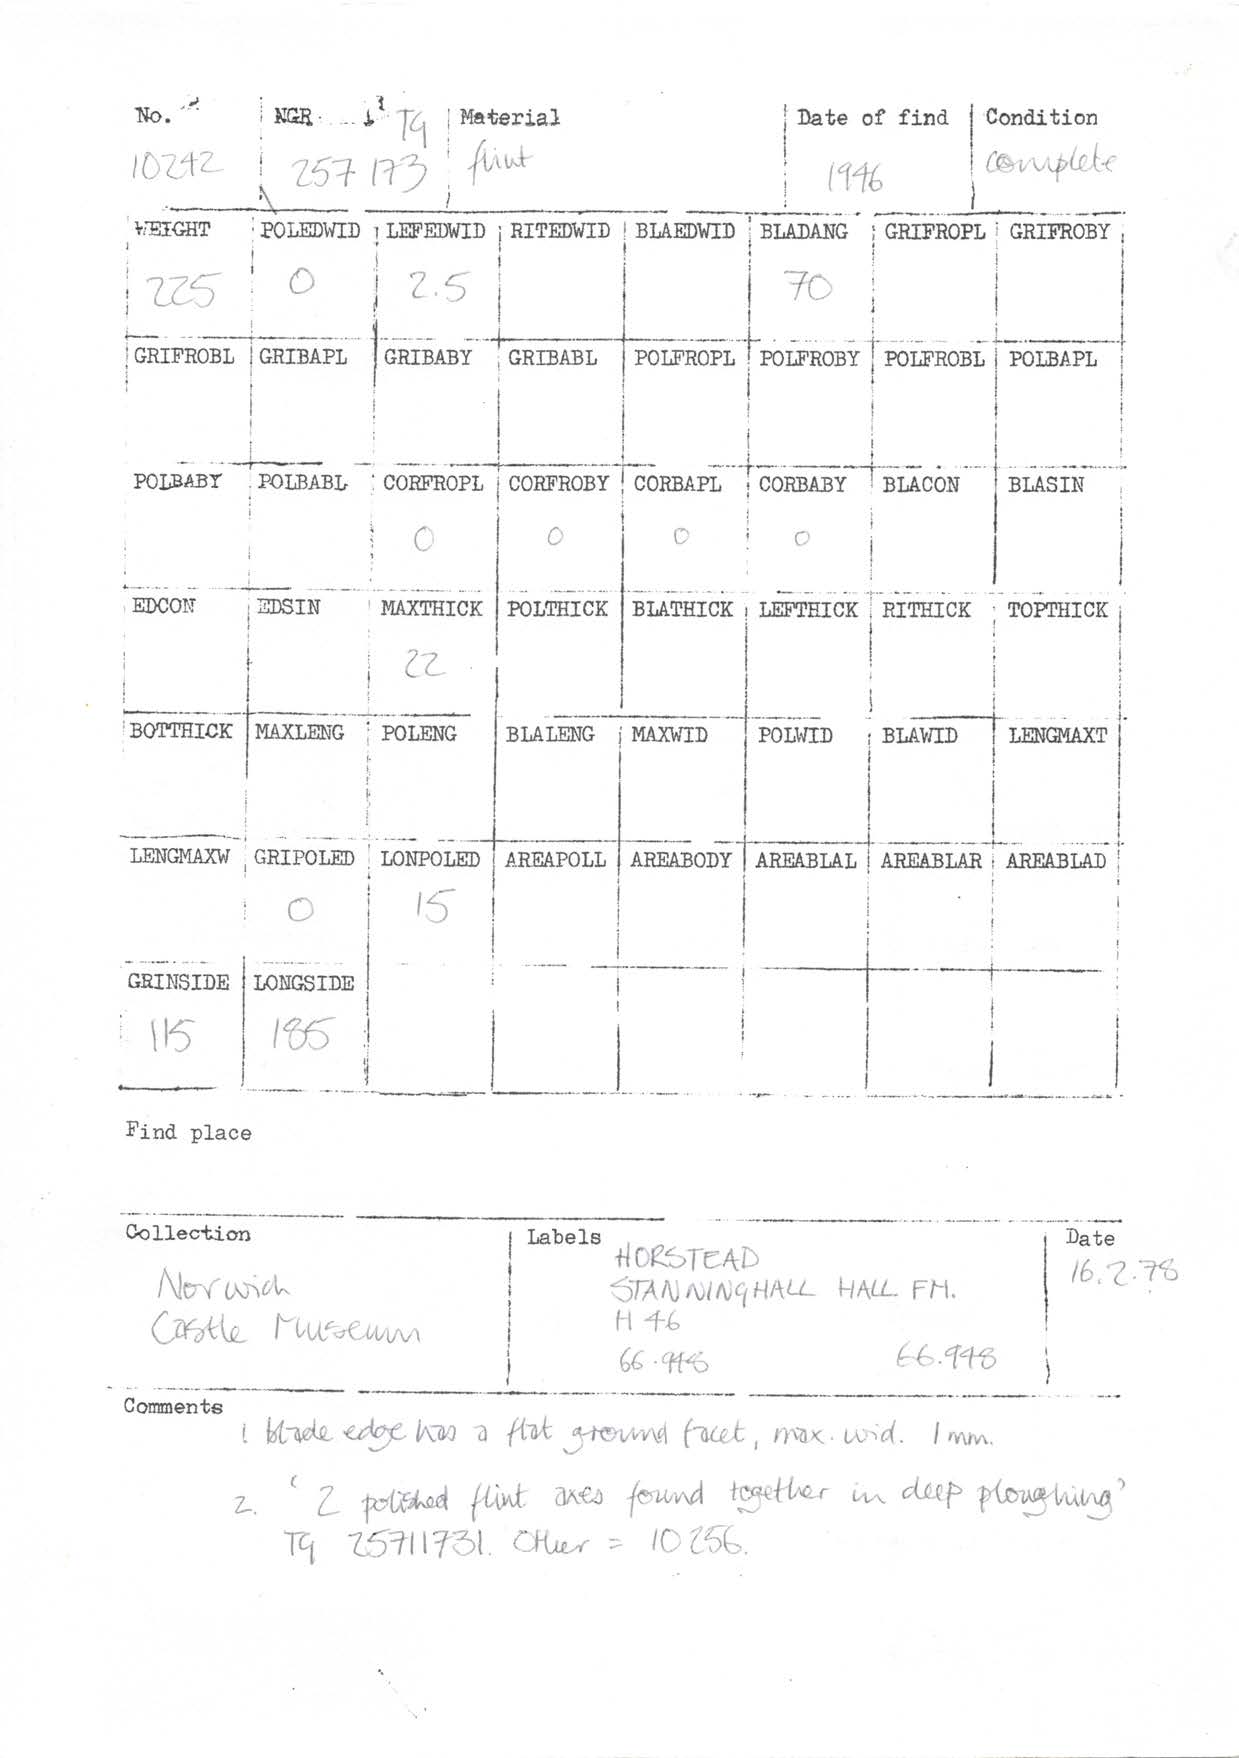 No. NGR TG Material Date of find Condition
10242 257 173 flint 1946 complete
WEIGHT POLEDWID LEFEDWID RITEDWID BLAEDWID BLADANG GRIFROPL GRIFROBY
225 0 2.5 70
GRIFROBL GRIBAPL GRIBABY GRIBABL POLFROPL POLFROBY POLFROBL POLBAPL
POLBABY POLBABL CORFROPL CORFROBY CORBAPL CORBABY BLACON BLASIN
0 0 0 0
EDCON EDSIN MAXTHICK POLTHICK BLATHICK LEFTHICK RITHICK TOPTHICK
22
BOTTHICK MAXLENG POLENG BLALENG MAXWID POLWID BLAWID LENGMAXT
LENGMAXW GRIPOLED LONPOLED AREAPOLL AREABODY AREABLAL AREABLAR AREABLAD
0 15
GRINSIDE LONGSIDE
115 185
Find place
Collection Labels Date
HORSTEAD 16.2.78
Norwich STANNINGHALL HALL FM.
Castle Museum H 46
66.948 66.948
Comments
1 blade edge has a flat ground facet, max. wid. 1 mm.
2. '2 polished flint axes found together in deep ploughing'
TG 25711731. Other = 10256.